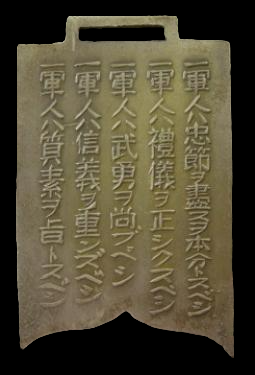 一軍人ハ忠節ヲ盡スヲ本分トスベシ
一軍人ハ禮儀ヲ正シクスベシ
一軍人ハ武勇ヲ尚ブベシ
一軍人ハ信義ヲ重ンズベシ
一軍人ハ質素ヲ旨トスベシ